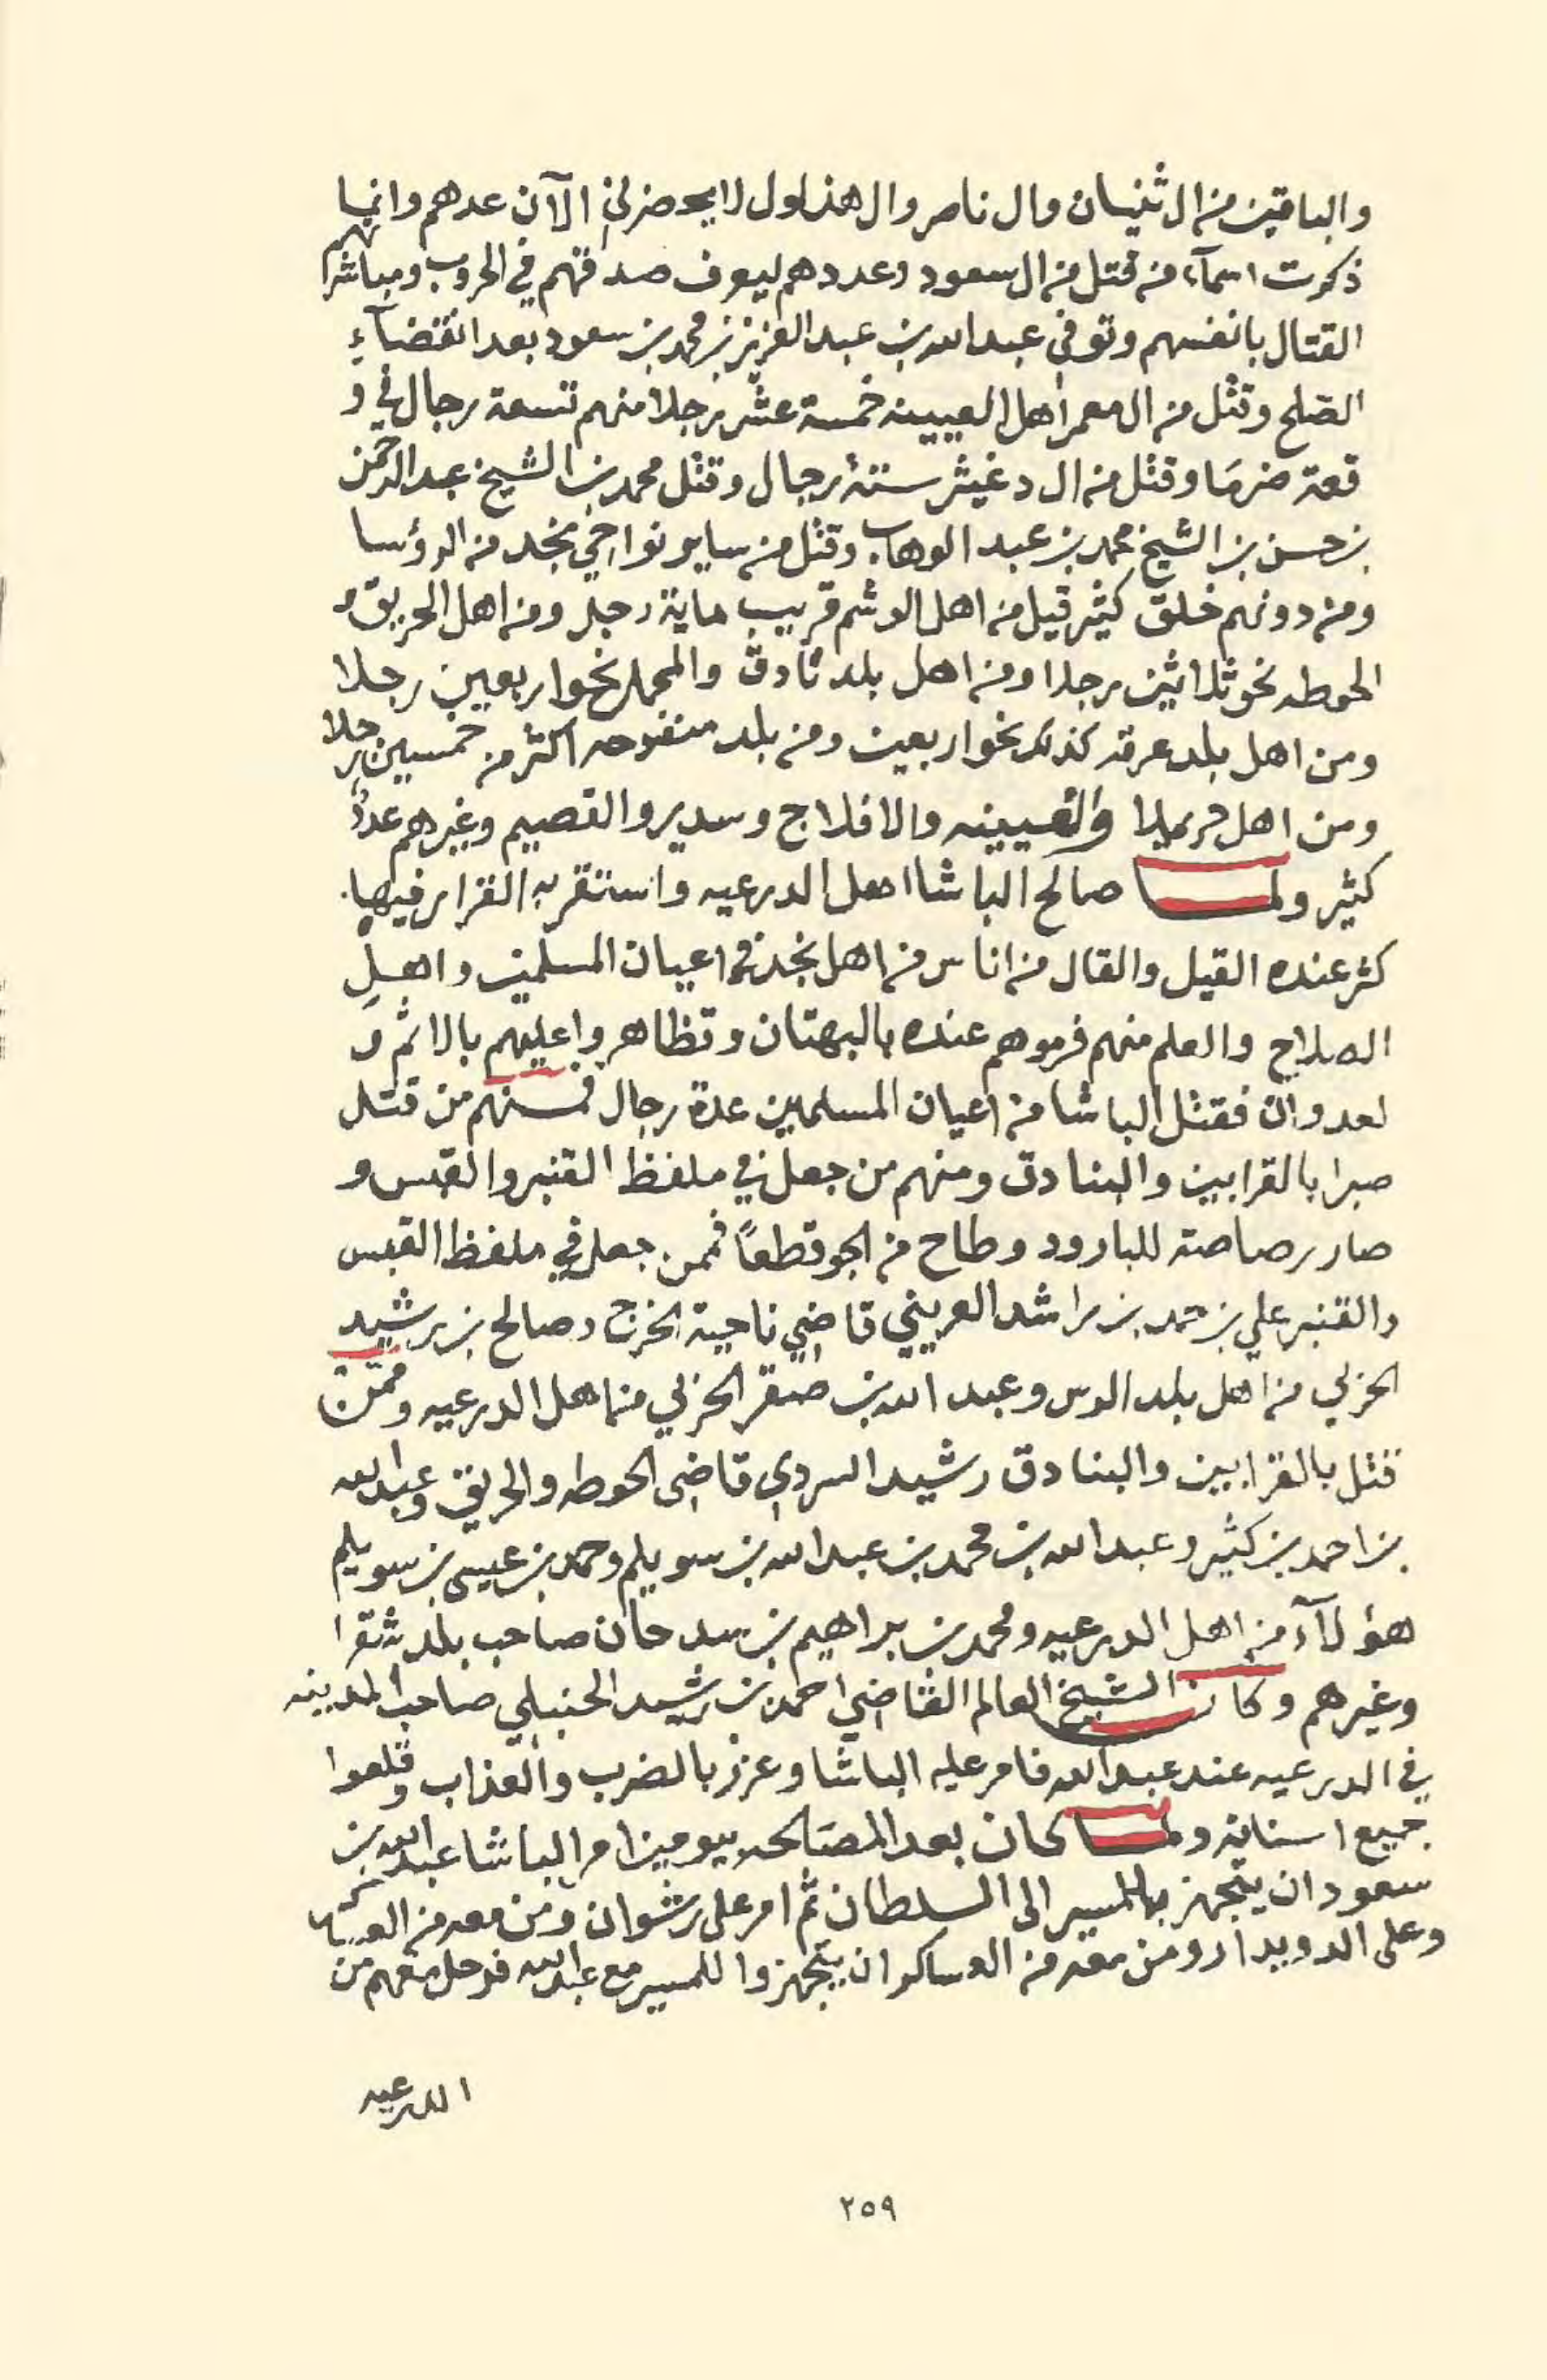 والباقين من ال ثنيان وال ناصر وال هذلول لا يحضرني الآن عدهم وانما
ذكرت اسمآء من قتل من ال سعود وعددهم ليعرف صدقهم في الحروب ومباشرتهم
القتال بانفسهم وتوفى عبدالله بن عبدالعزيز بن محمد بن سعود بعد انقضآءِ
الصلح وقتل من ال معمر اهل العيينه خمسة عشر رجلا منهم تسعة رجال في و
قعة ضرما وقتل من ال دغيثر ستة رجال وقتل محمد بن الشيخ عبدالرحمن
بن حسن بن الشيخ محمد بن عبد الوهاب وقتل من ساير نواحي نجد من الرؤسا
ومن دونهم خلق كثير قيل من اهل الوشم قريب ماية رجل ومن اهل الحريق و
الحوطه نحو ثلاثين رجلا ومن اهل بلد ثادق والمحمل نحو اربعين رجلا
ومن اهل بلد عرقه كذلك نحو اربعين ومن بلد منفوحه اكثر من خمسين رجلا
ومن اهل حريملا والعيينه والافلاج وسدير والقصيم وغيرهم عددٌ
كثير ولما صالح الباشا اهل الدرعيه واستقر به القرار فيها
كثر عنده القيل والقال من اناس من اهل نجد في اعيان المسلمين واهل
الصلاح والعلم منهم فرموهم عنده بالبهتان وتظاهروا عليهم بالاثم و
لعدوان فقتل الباشا من اعيان المسلمين عدة رجال فمنهم من قتل
صبرا بالقرابين والبنادق ومنهم من جعل في ملفظ القنبر والقبس و
صار رصاصة للبارود وطاح من الجو قطعاً فممن جعل في ملفظ القبس
والقنبر علي بن حمد بن راشد العريني قاضي ناحية الخرج وصالح بن رشيد
الحربي من اهل بلد الرس وعبد الله بن صقر الحربي من اهل الدرعيه وممن
قتل بالقرابين والبنادق رشيد السردي قاضي الحوطه والحريق وعبدالله
بن احمد بن كثير وعبد الله بن محمد بن عبدالله بن سويلم وحمد بن عيسى بن سويلم
هؤلآء من اهل الدرعيه ومحمد بن براهيم بن سدحان صاحب بلد شقرا
وغيرهم وكان الشيخ العالم القاضي احمد بن رشيد الحنبلي صاحب المدينه
في الدرعيه عند عبدالله فامر عليه الباشا وعزر بالضرب والعذاب وقلعوا
جميع اسنانه ولما كان بعد المصالحه بيومين امر الباشا عبدالله بن
سعود ان يتجهز للمسير الى السلطان ثم امر على رشوان ومن معه من العساكر
وعلى الدويدار ومن معه من العساكر ان يتجهزوا للمسير مع عبدالله فرحل معهم من
الدرعيه
٢٥٩